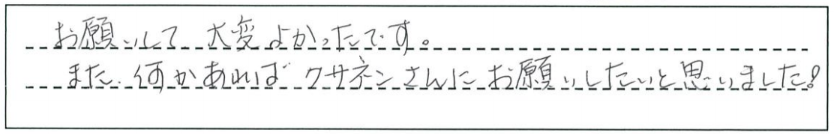 お願いして 大変よかったです。
また、何かあれば クサネンさんに お願いしたいと思いました!